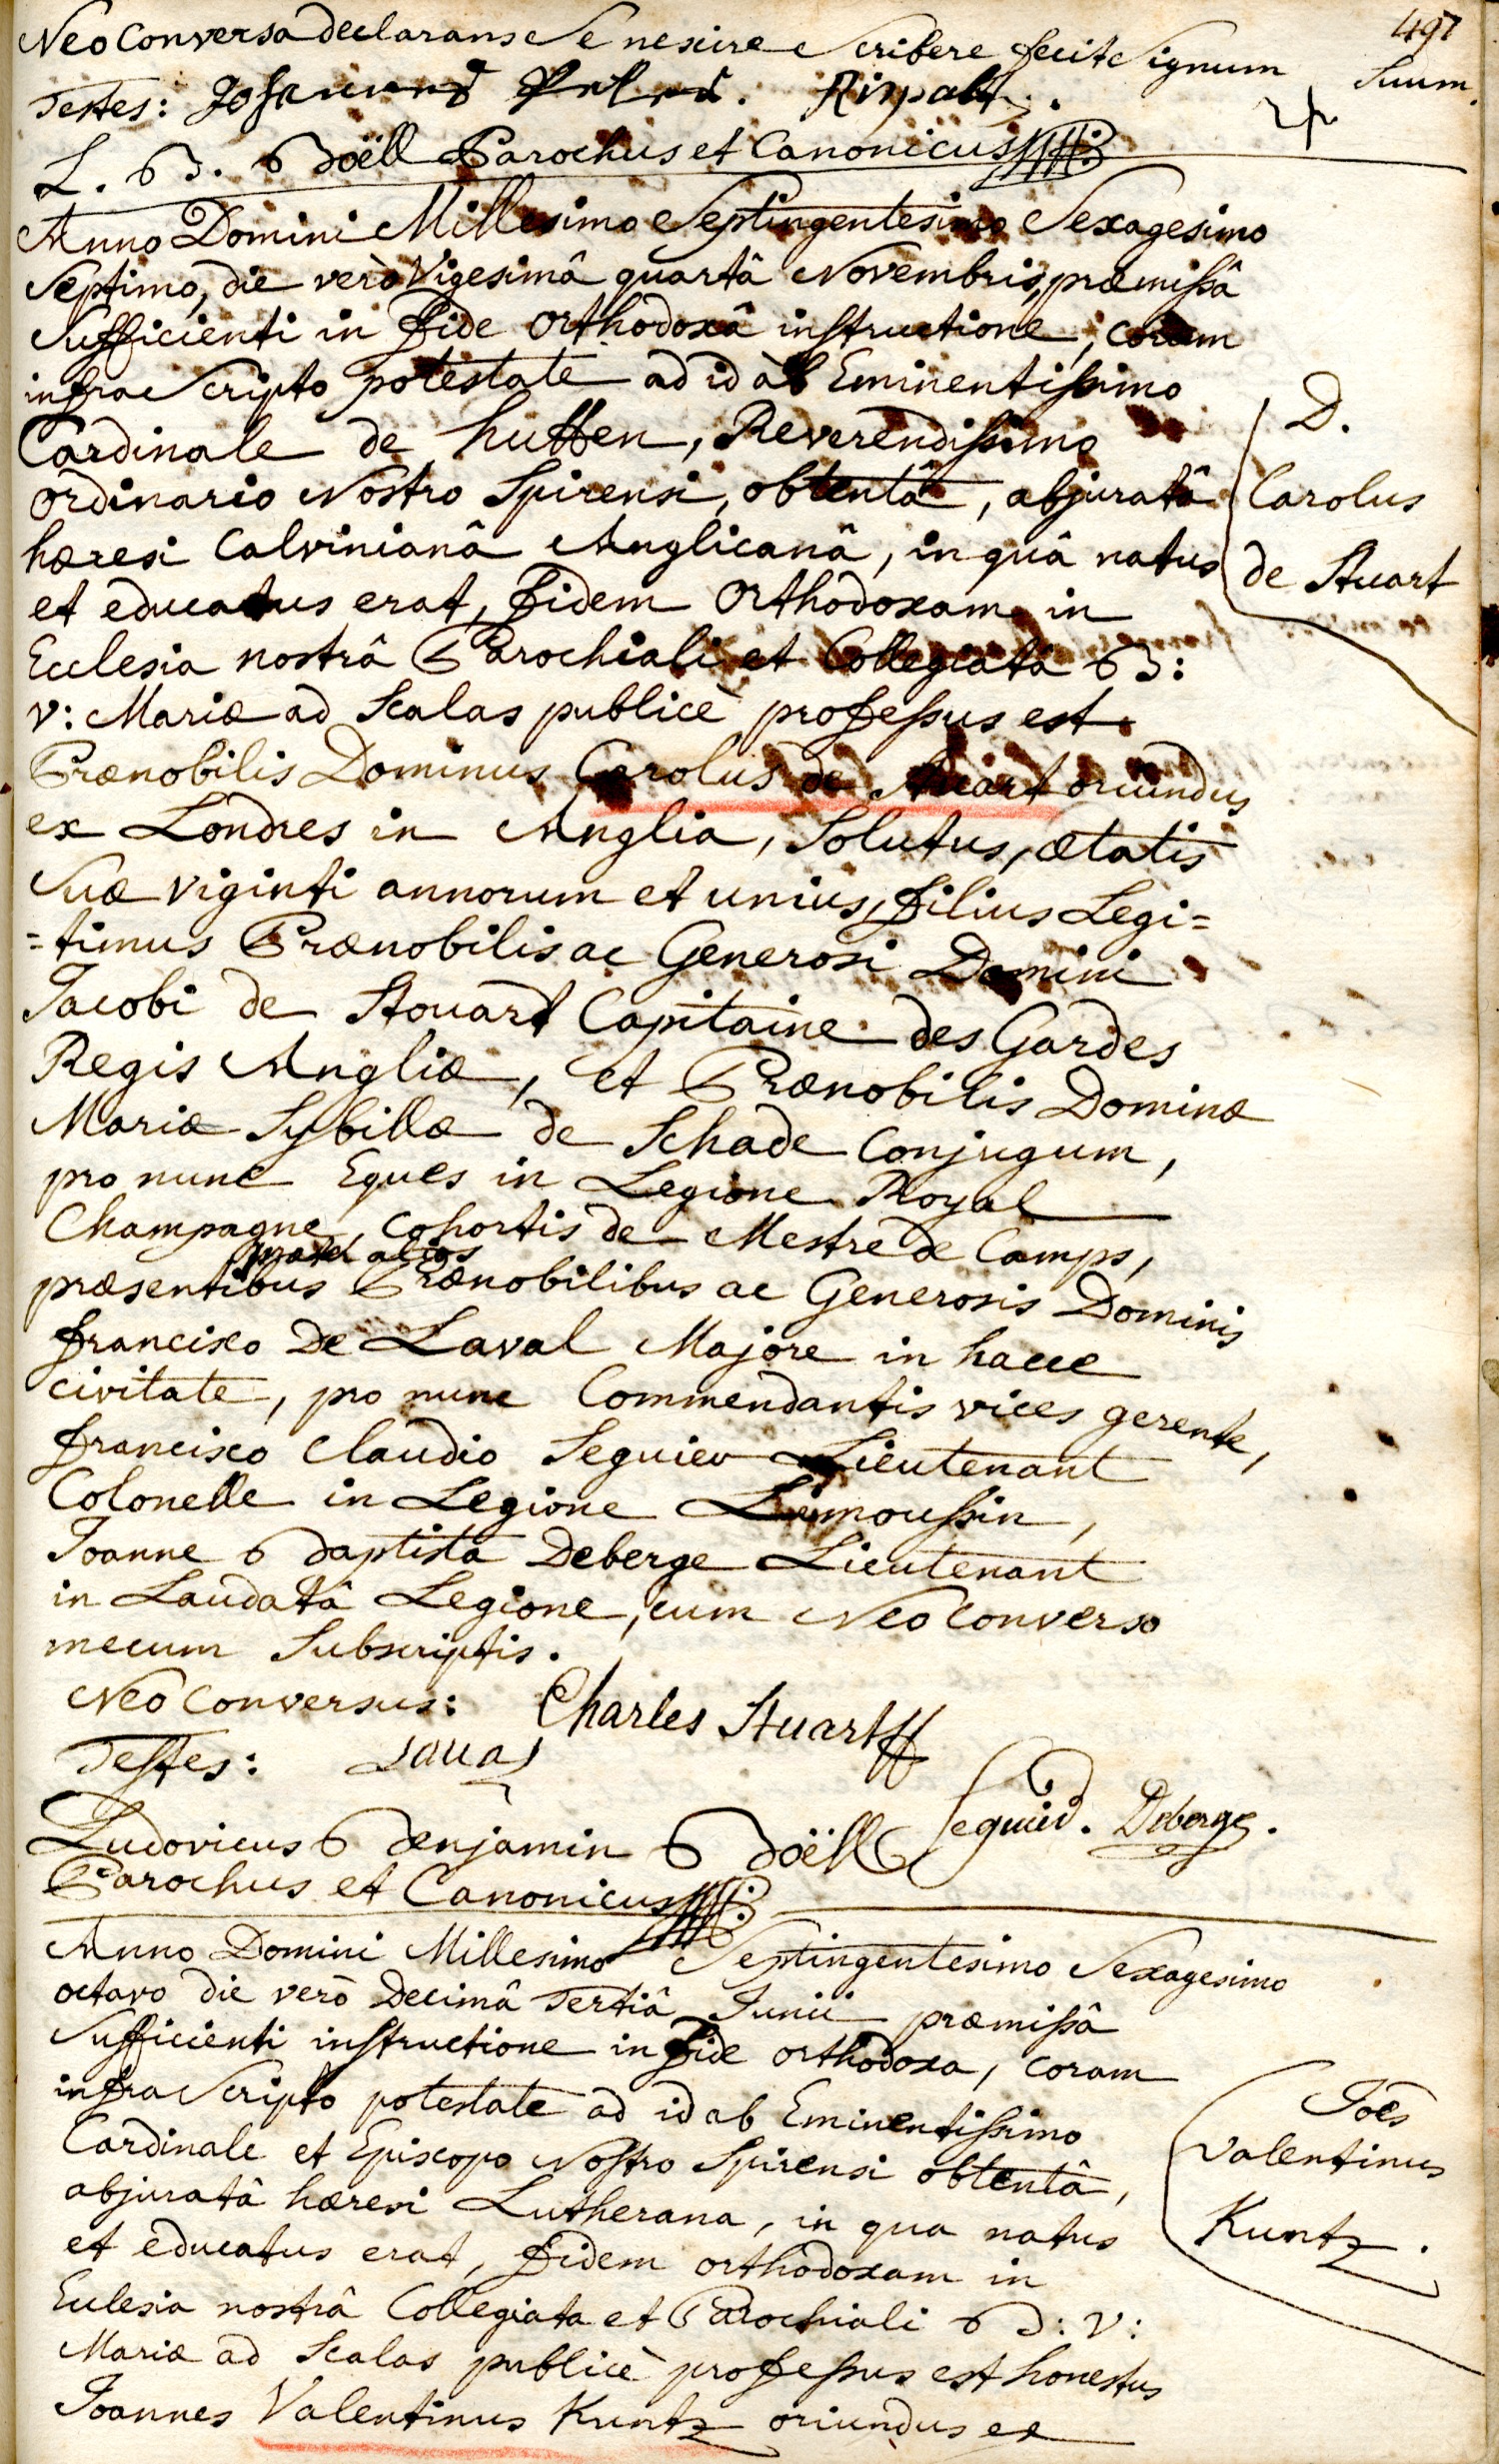 497
Neo Conversa declarans se nescire scribere fecit signum suum.
Testes: Johannes Rinpalt.
L. B. Boëll Parochus et Canonicus
Anno Domini Millesimo Septingentesimo Sexagesimo
Septimo, die verò Vigesimâ quartâ Novembris, præmissâ
sufficienti in fide orthodoxâ instructione, coram
infra scripto potestate ad id ab Eminentissimo
Cardinale de hutten, Reverendissimo
ordinario Nostro Spirensi, obtentâ, abjuratâ
hæresi Calvinianâ Anglicanâ, in quâ natus
et educatus erat, fidem orthodoxam in
Ecclesia nostrâ Parochiali et Collegiatâ B:
v: Mariæ ad Scalas publicè professus est.
Prænobilis Dominus Carolus de Stuart oriundus
ex Londres in Anglia, Solutus, ætatis
suæ viginti annorum et unius, filius Legi=
=timus Prænobilis ac Generosi Domini
Jacobi de Stouart Capitaine des Gardes
Regis Angliæ, et Prænobilis Dominæ
Mariæ Sybillæ de Schade Conjugum,
pro nunc Eques in Legione Royal
Champagne, Cohortis de Mestre de Camps,
præter alios
præsentibus Prænobilibus ac Generosis Dominis
francisco De Laval Majore in hacce
civitate, pro nunc Commendantis vices gerente,
francisco Claudio Seguier Lieutenant
Colonelle in Legione Limoussin,
Joanne Baptista Deberge Lieutenant
in Laudatâ Legione, cum Neo Converso
mecum Subscriptis.
D.
Carolus
de Stuart
Neo Conversus: Charles Stuart
Testes: Laual
Seguier. Deberge.
Ludovicus Benjamin Boëll
Parochus et Canonicus
Anno Domini Millesimo Septingentesimo Sexagesimo
octavo die verò Decimâ Tertiâ Junii præmissâ
sufficienti instructione in fide orthodoxa, coram
infra scripto potestate ad id ab Eminentissimo
Cardinale et Episcopo Nostro Spirensi obtentâ,
abjuratâ hæresi Lutherana, in qua natus
et educatus erat, fidem orthodoxam in
Ecclesia nostrâ Collegiata et Parochiali B: V:
Mariæ ad Scalas publicè professus est honestus
Joannes Valentinus Kuntz oriundus ex
Joês
Valentinus
Kuntz.